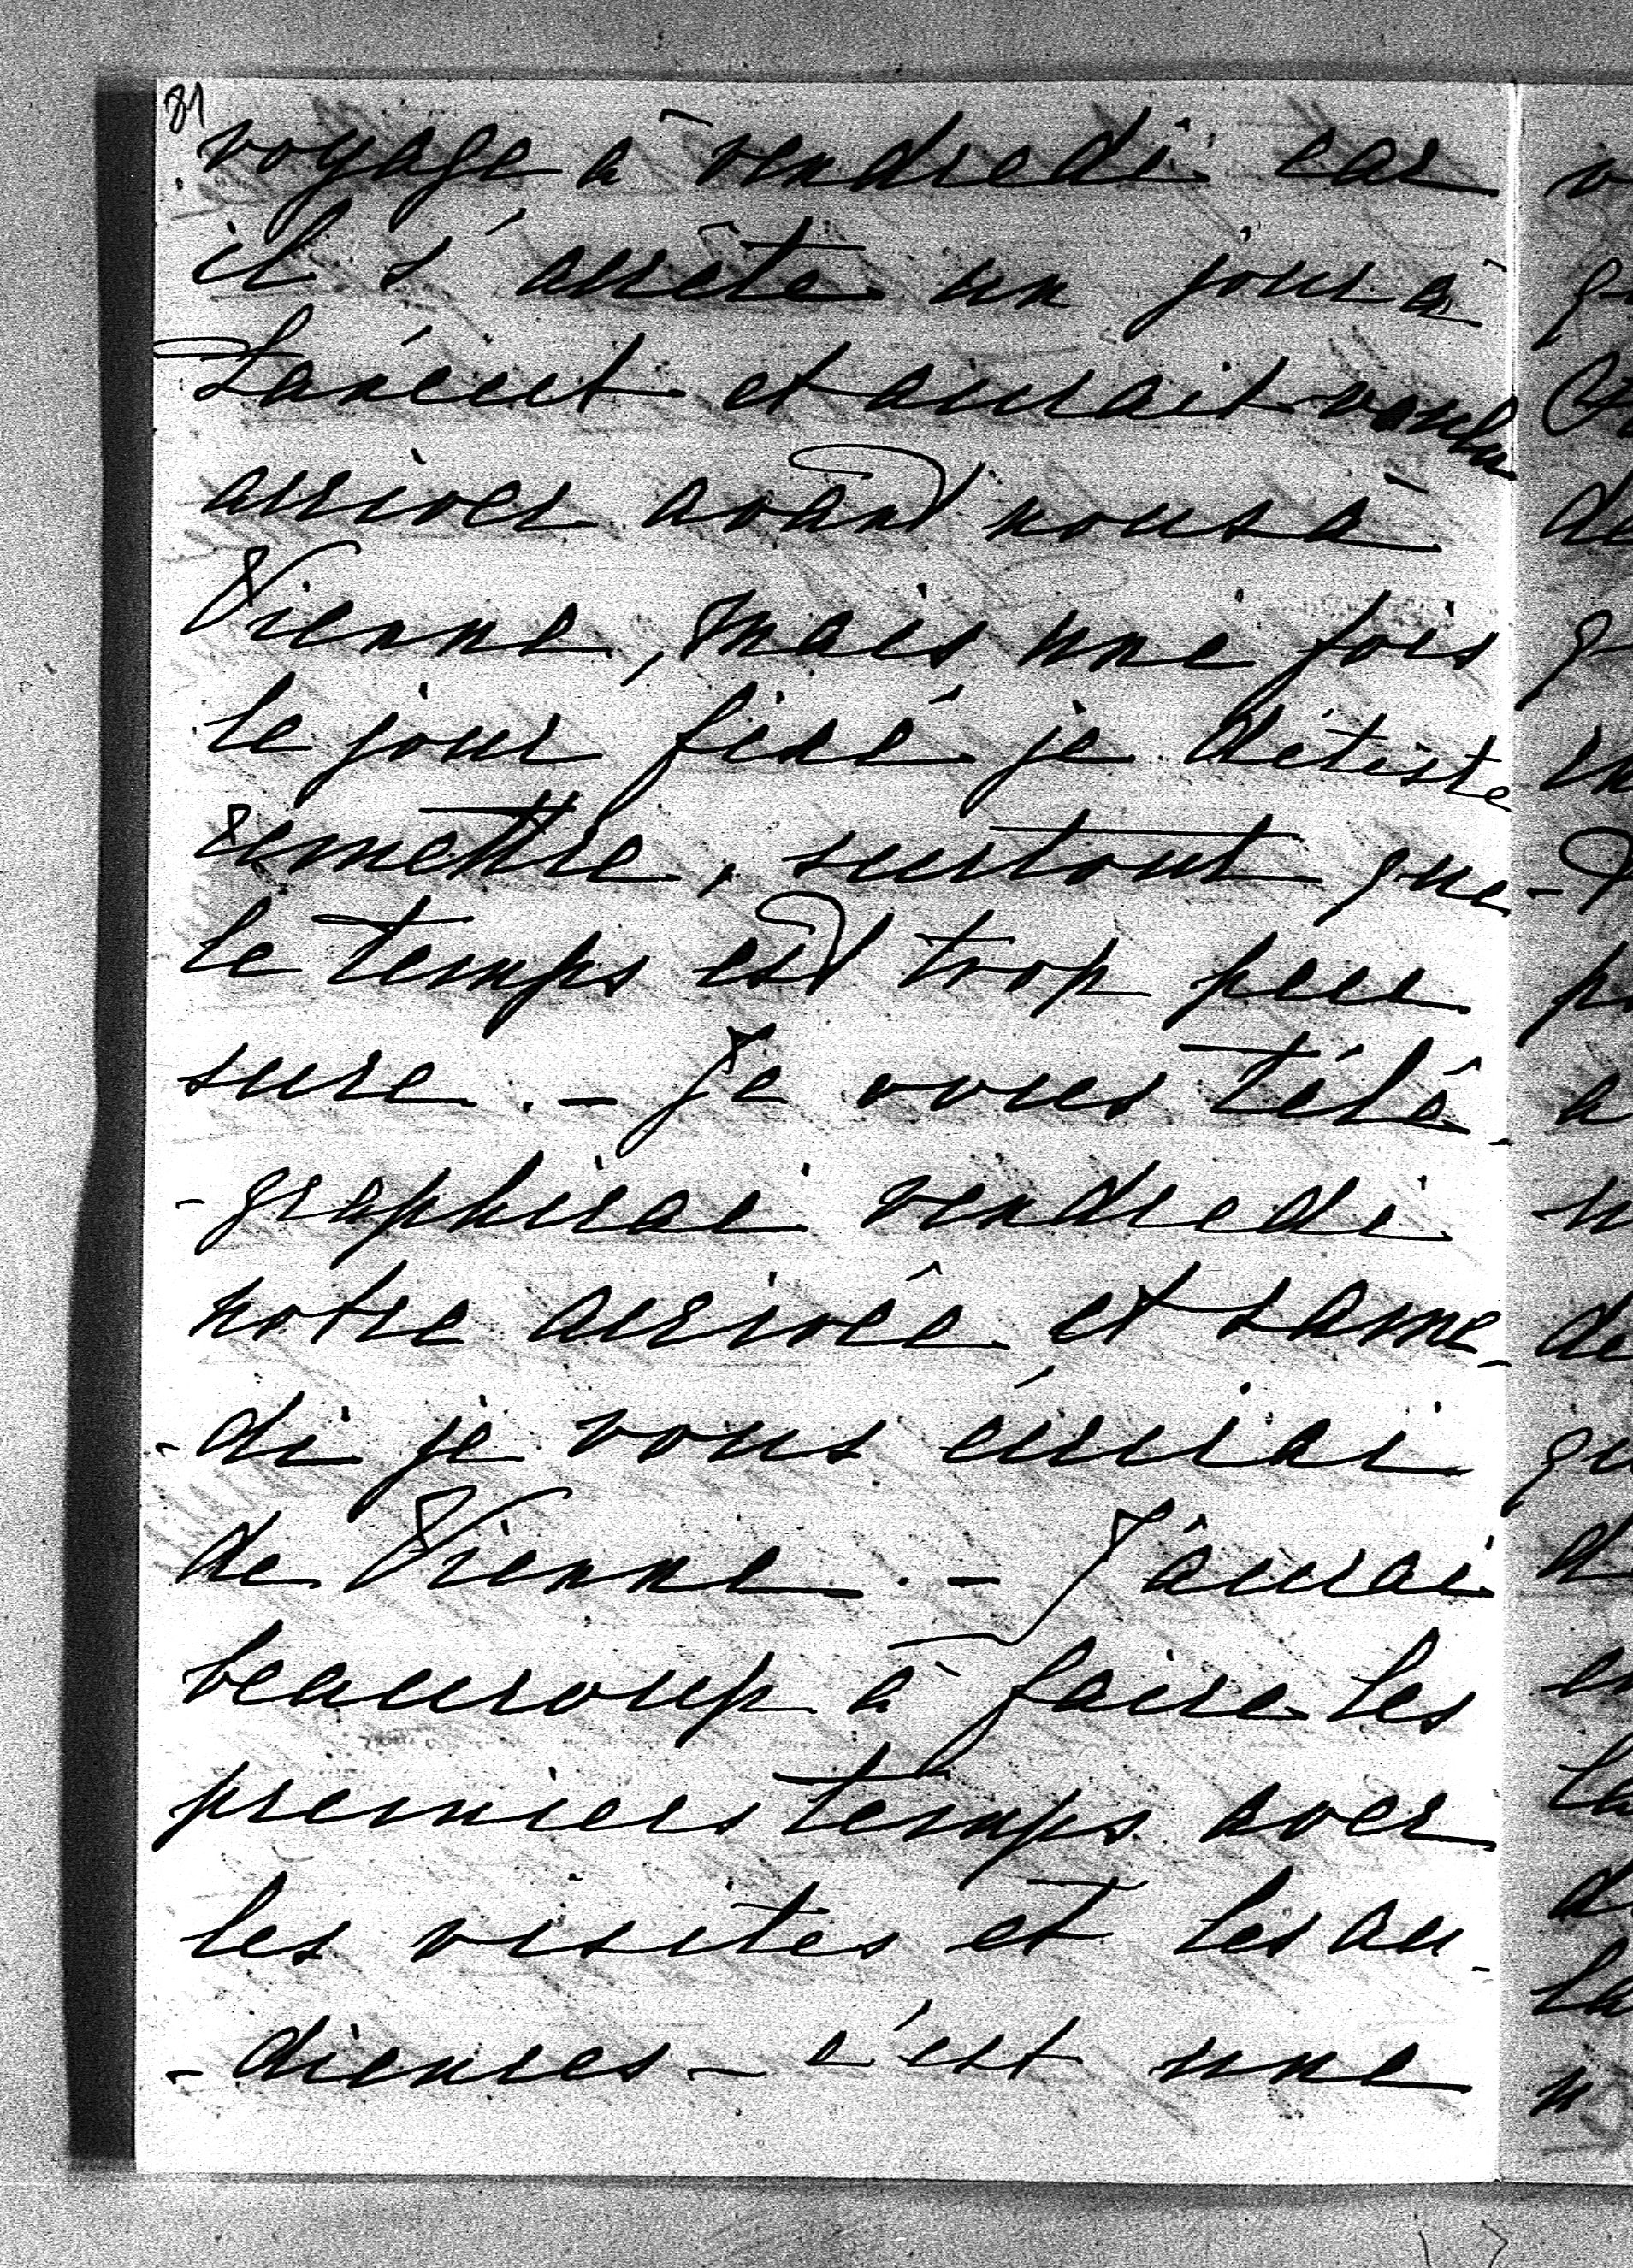 81
voyage à vendredi car
il s'arrête un jour à
Lancut et aurait voulu
arriver avant nous à
Vienne, mais une fois
le jour fixé je déteste
remettre, surtout que
le temps est trop peu
sure. - Je vous télé-
-graphirai vendredi
notre arrivée et same-
-di je vous écrirai
de Vienne. - J'aurai
beaucoup à faire les
premiers temps avec
les visites et les au-
-diences - c'est une